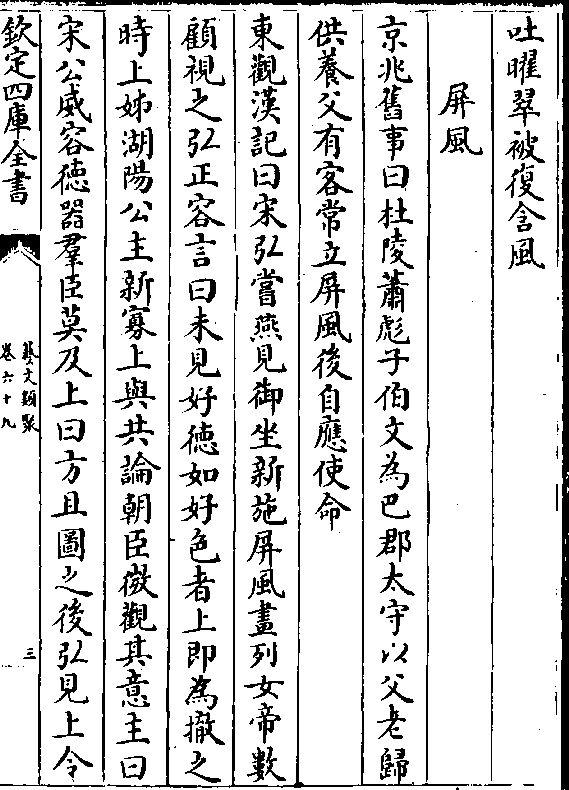 吐曜翠被復含風
屏風
京兆舊事曰杜陵蕭彪子伯文為巴郡太守以父老歸
供養父有客常立屏風後自應使命
東觀漢記曰宋弘嘗燕見御坐新施屏風畫列女帝數
顧視之弘正容言曰未見好徳如好色者上即為撤之
時上姊湖陽公主新寡上與共論朝臣微觀其意主曰
宋公威容徳器羣臣莫及上曰方且圖之後弘見上令
欽定四庫全書
藝文類聚
卷六十九
三